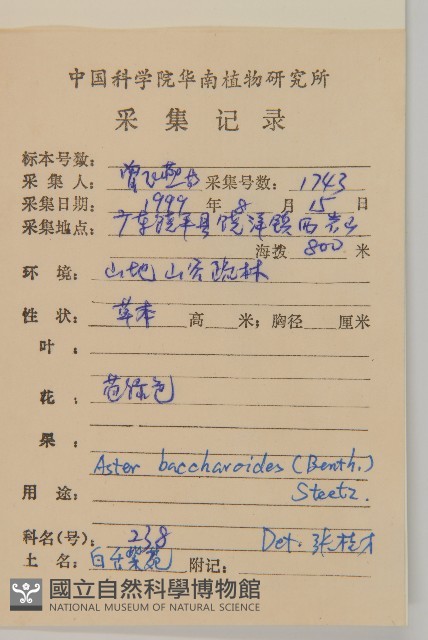 中国科学院华南植物研究所
采集记录
标本号数:
采集人: 曾飞燕 采集号数: 1743
采集日期: 1999 年 8 月 15 日
采集地点: 广东饶平县饶洋镇西岩山
海拨 800 米
环境: 山地 山谷疏林
性状: 草本 高 米; 胸径 厘米
叶:
花: 苞绿色
果:
Aster baccharoides (Benth.)
用途: Steetz.
科名(号): 238 Det. 张桂才
土名: 白舌紫菀 附记:
國立自然科學博物館
NATIONAL MUSEUM OF NATURAL SCIENCE